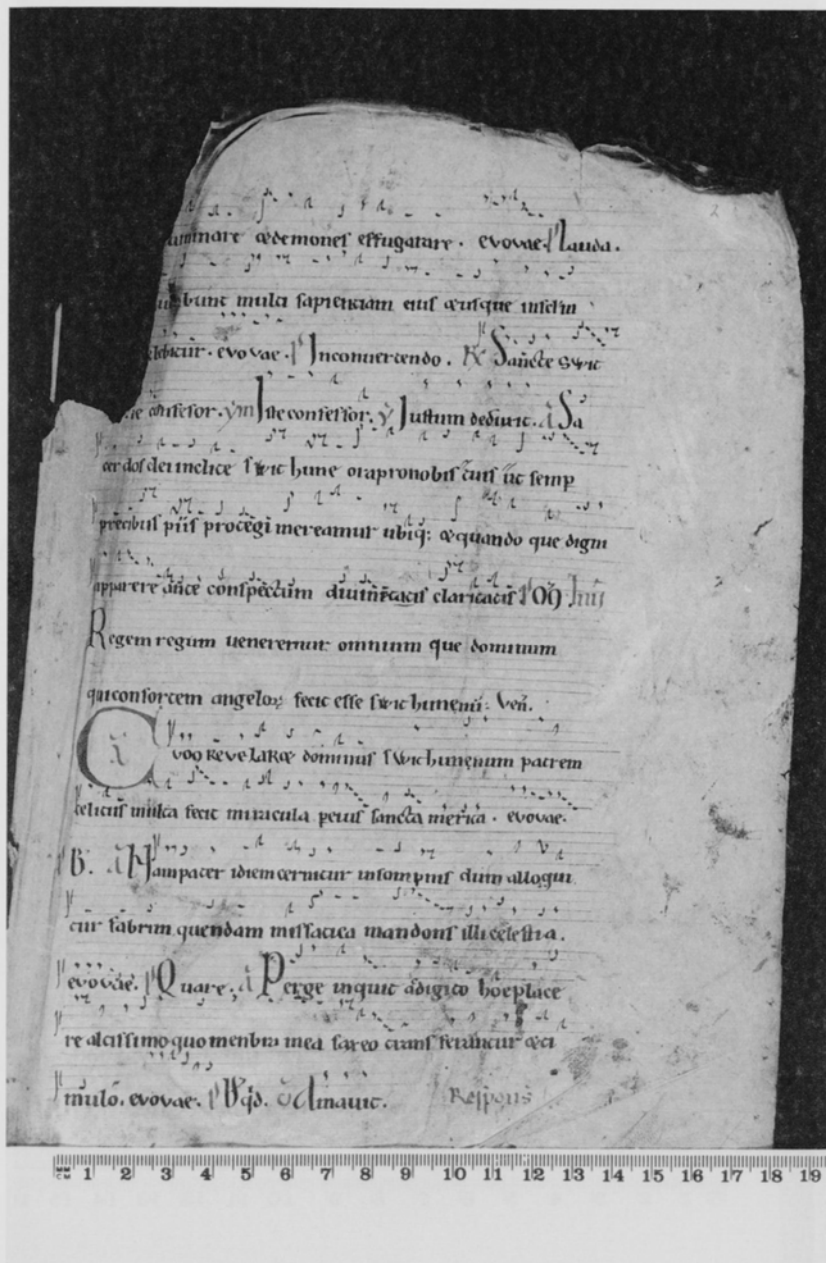 2
uminare & demones effugatare. evovae. Ps Lauda.
bunt multi sapientiam eius &usque inselm
lebitur. evovae. Ps Inconvertendo. R Sancte swit
ne confesor. ym Iste confessor. V Iustum deduxit. A Sa
cerdos dei inclite swithune ora pro nobis cuis ut semp
precibus piis protegi mereamur ubiq; & quando que digni
apparere ante conspectum divinitatis claritatis
Regem regum veneremur omnium que dominum
qui consortem angeloꝝ fecit esse swithunem: Ven.
Cvoo revelare dominus swithunenum patrem
celicus multa fecit miracula peius sancta merita. evovae.
B. A Nam pater idem cernitur in sompnis dum alloqui
tur fabrum quendam missatica mandans illi celestia.
evovae. Ps Quare. A Perge inquit adigito hoc place
re altissimo quo menbra mea saxeo trans ferantur & ci
mulo. evovae. Ps Dqd. V Amavit. Respons
1 2 3 4 5 6 7 8 9 10 11 12 13 14 15 16 17 18 19